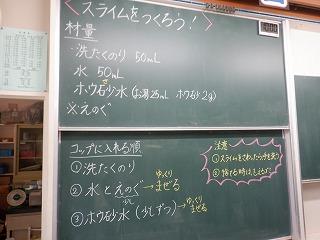 スライムをつくろう!
材量
・洗たくのり 50mL
水 50mL
ホウ砂水 (お湯25mL ホウ砂2g)
さ
※えのぐ
コップに入れる順
①洗たくのり
②水とえのぐ→まぜる
少し
ゆっくり
③ホウ砂水(少しずつ)→まぜる
ゆっくり
注意
①スライムをさわったら手を洗う
②捨てる時は